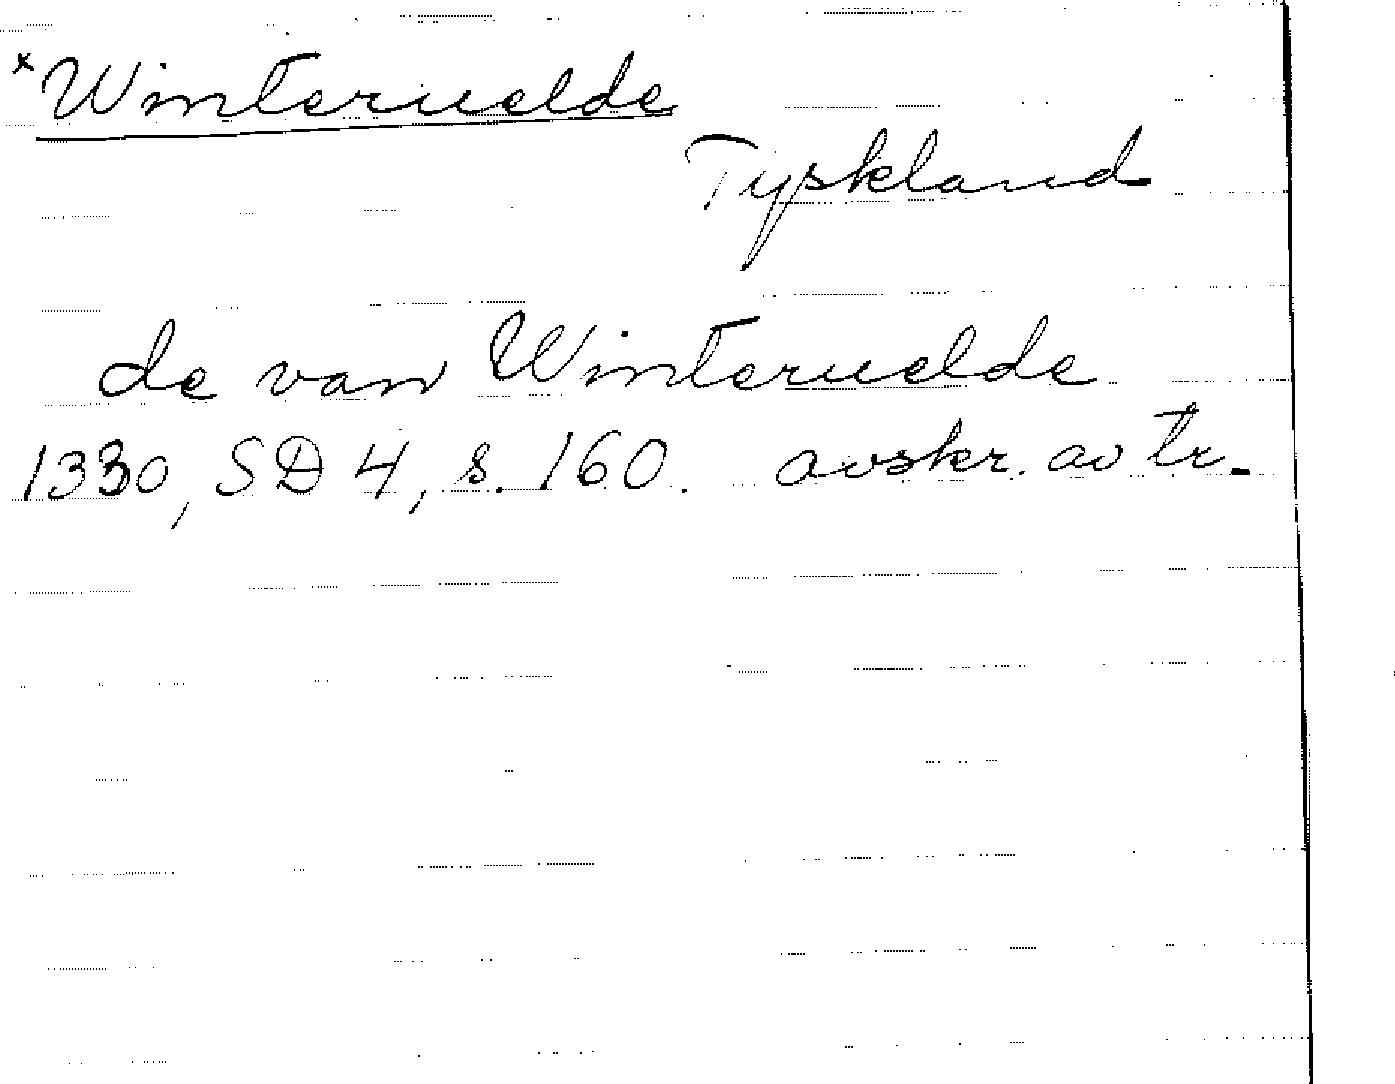 x Winteruelde
Tyskland
de van Winteruelde
1330, SD 4, s. 160. avskr. av tr.